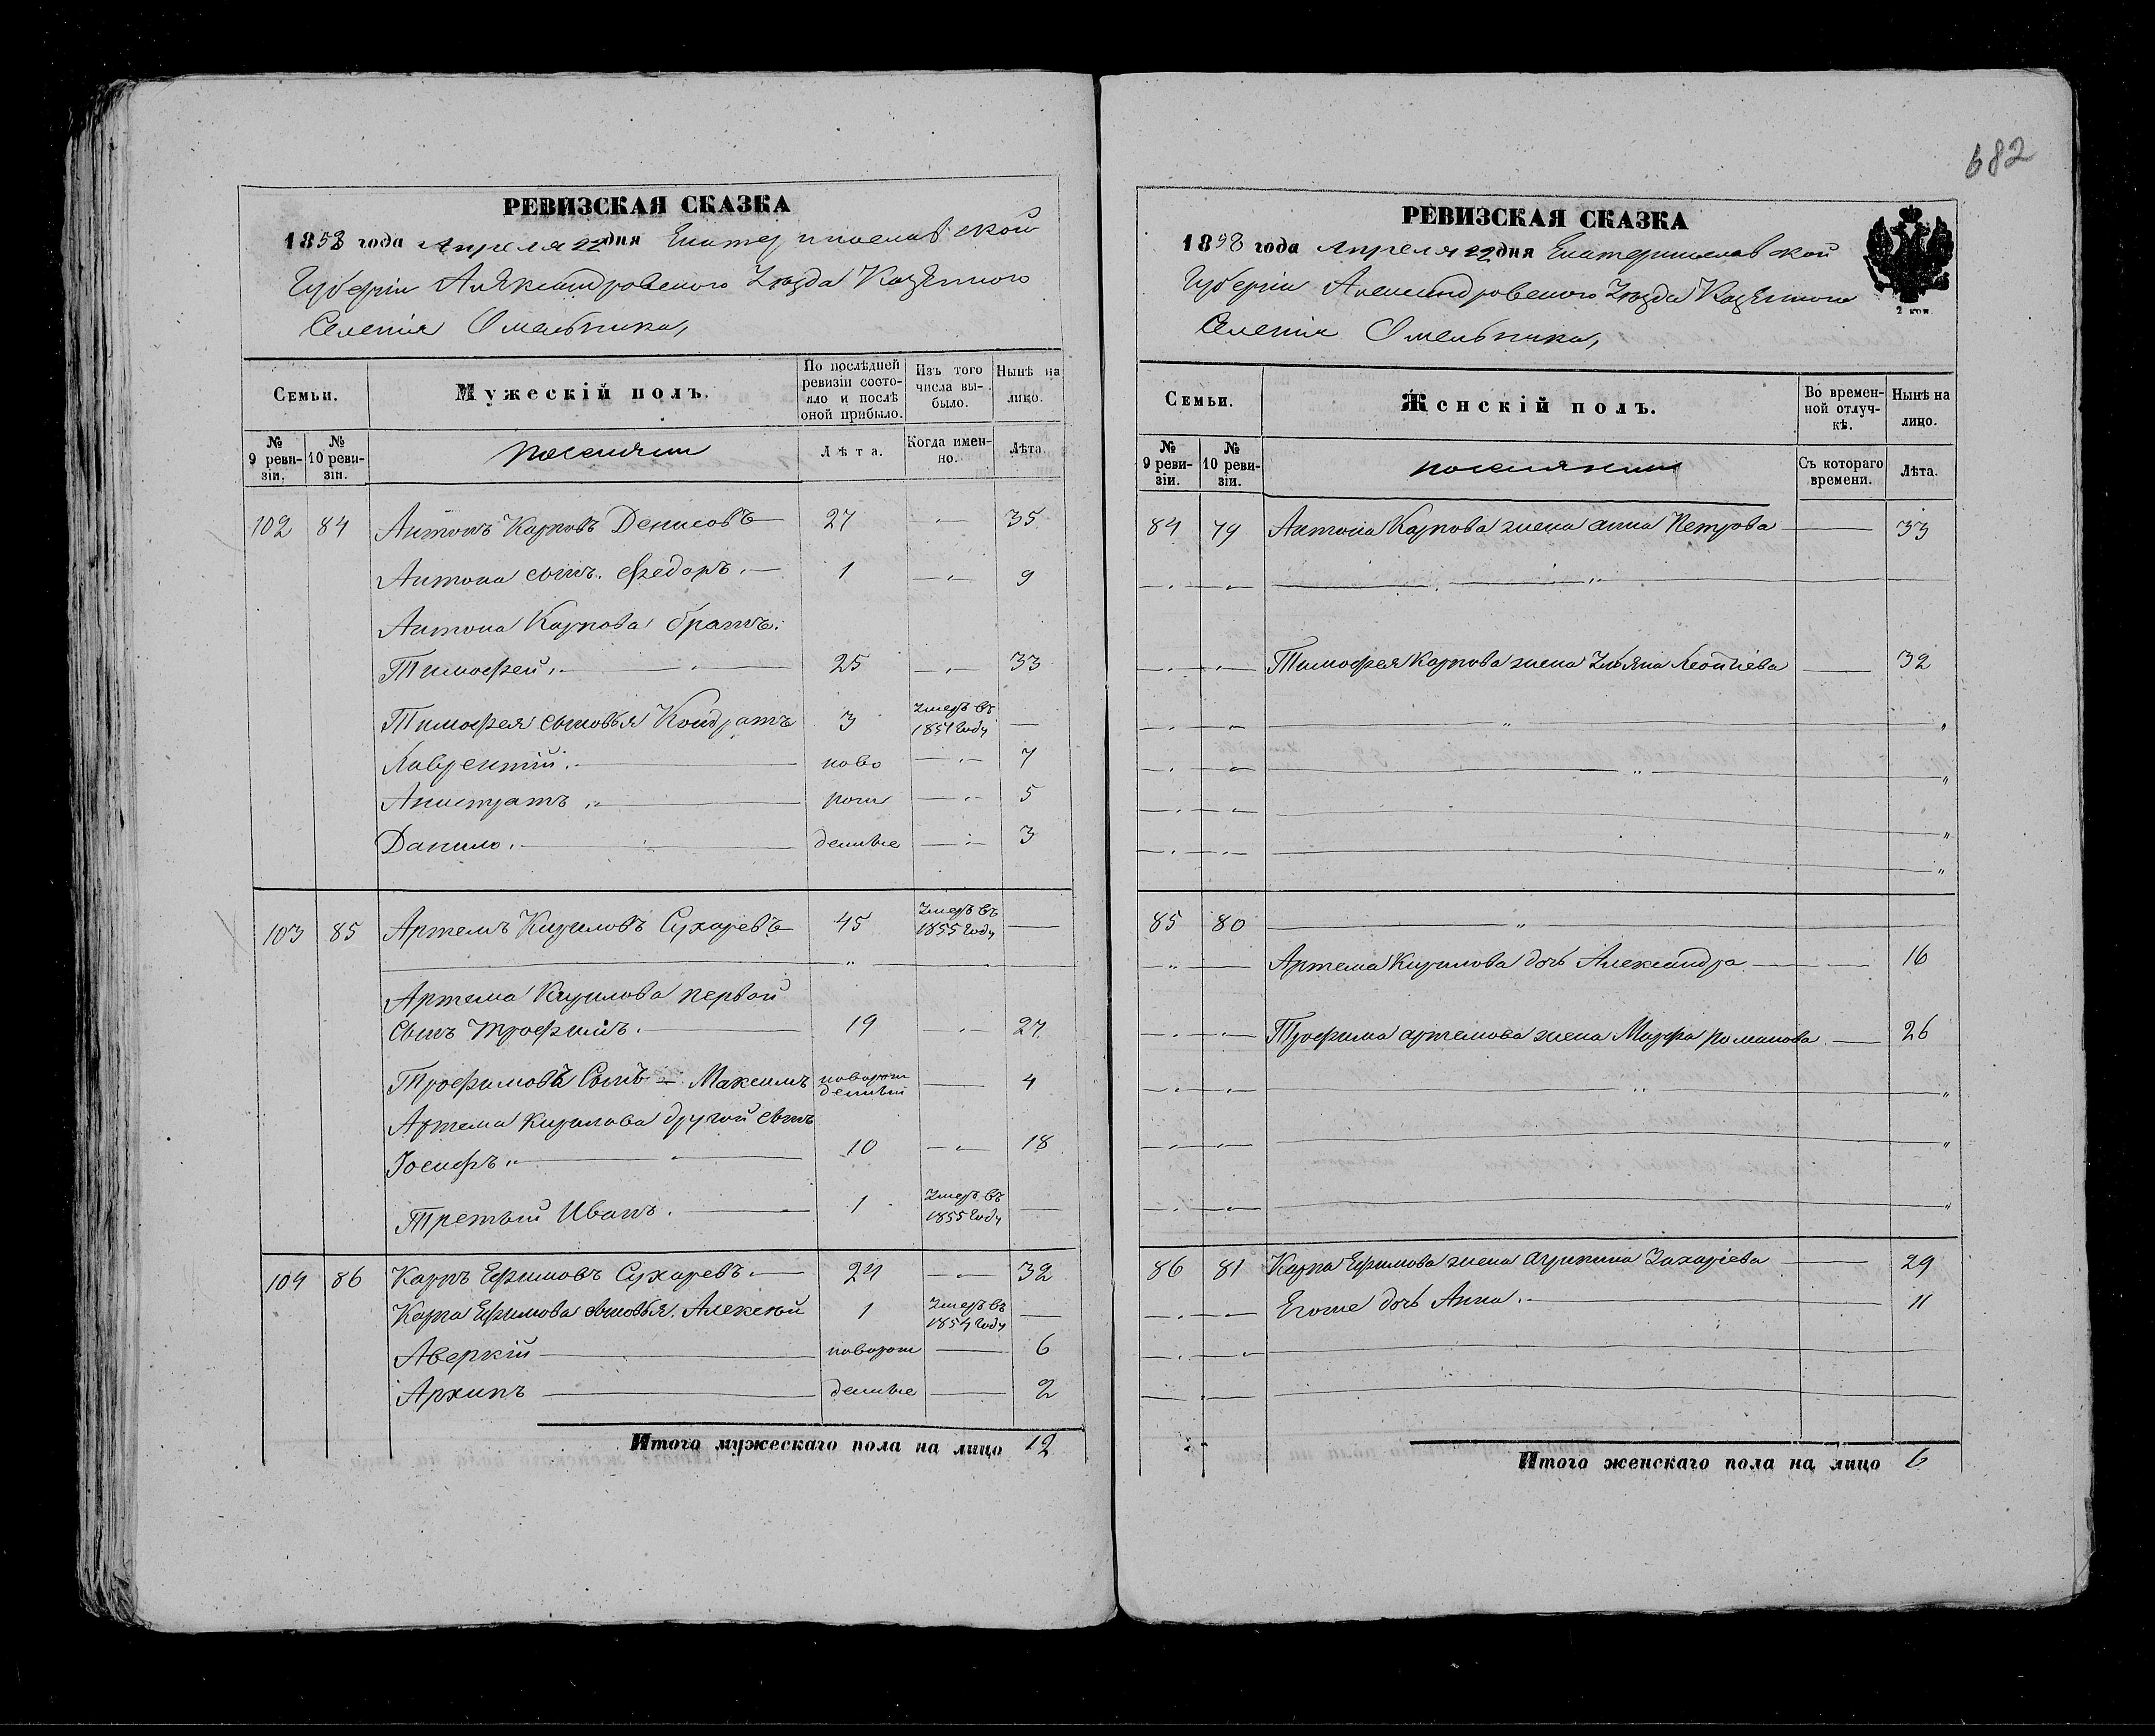 682
РЕВИЗСКАЯ СКАЗКА
1858 года Апреля 22 дня Екатеринославской
Губерніи Александровского Уезда Казенного
Селенія Омельника,
Семьи.
Мужескій полъ.
По послѣдней ревизіи состояло и послѣ оной прибыло.
Изъ того числа выбыло.
Нынѣ на лицо.
№ 9 ревизіи.
№ 10 ревизіи.
поселяни
Лѣта.
Когда именно.
Лѣта
102 84 Антонъ Карповъ Денисовъ 27 35
Антона сынъ. Федоръ. 1 9
Антона Карпова братъ.
Тимофей. 25 33
Тимофея сыновья Кондратъ 3 Умеръ въ 1854 году
Лаврентій. ново 7
Анистратъ рож 5
Данило. денные 3
103 85 Артемъ Кириловъ Сухаревъ 45 Умеръ въ 1855 году
Артема Кирилова первой
сынъ Трофимъ. 19 27
Трофимовъ Сынъ — Максимъ новорож денный 4
Артема Кирилова другой сынъ
Іосифъ 10 18
Третьий Иванъ. 1 Умеръ въ 1855 году
104 86 Карпъ Ефимовъ Сухаревъ. 24 32
Карпа Ефимова сыновья. Алексей 1 Умеръ въ 1854 году
Аверкій новорож 6
Архипъ денные 2
Итого мужескаго пола на лицо 12
РЕВИЗСКАЯ СКАЗКА
1858 года Апреля 22 дня Екатеринославской
Губерніи Александровского Уезда Казенного
Селенія Омельника,
2 коп.
Семьи.
Женскій полъ.
Во временной отлучкѣ.
Нынѣ на лицо.
№ 9 ревизіи.
№ 10 ревизіи.
Съ котораго времени.
Лѣта.
84 79 Антона Карпова жена анна Петрова 33
Тимофея Карпова жена Ульяна Леонтіева 32
85 80
Артема Кирилова дочь Александра 16
Трофима артемова жена Марфа романова 26
86 81 Карпа Ефимова жена Агрипина Захаріева 29
Егоже дочь Анна. 11
Итого женскаго пола на лицо 6